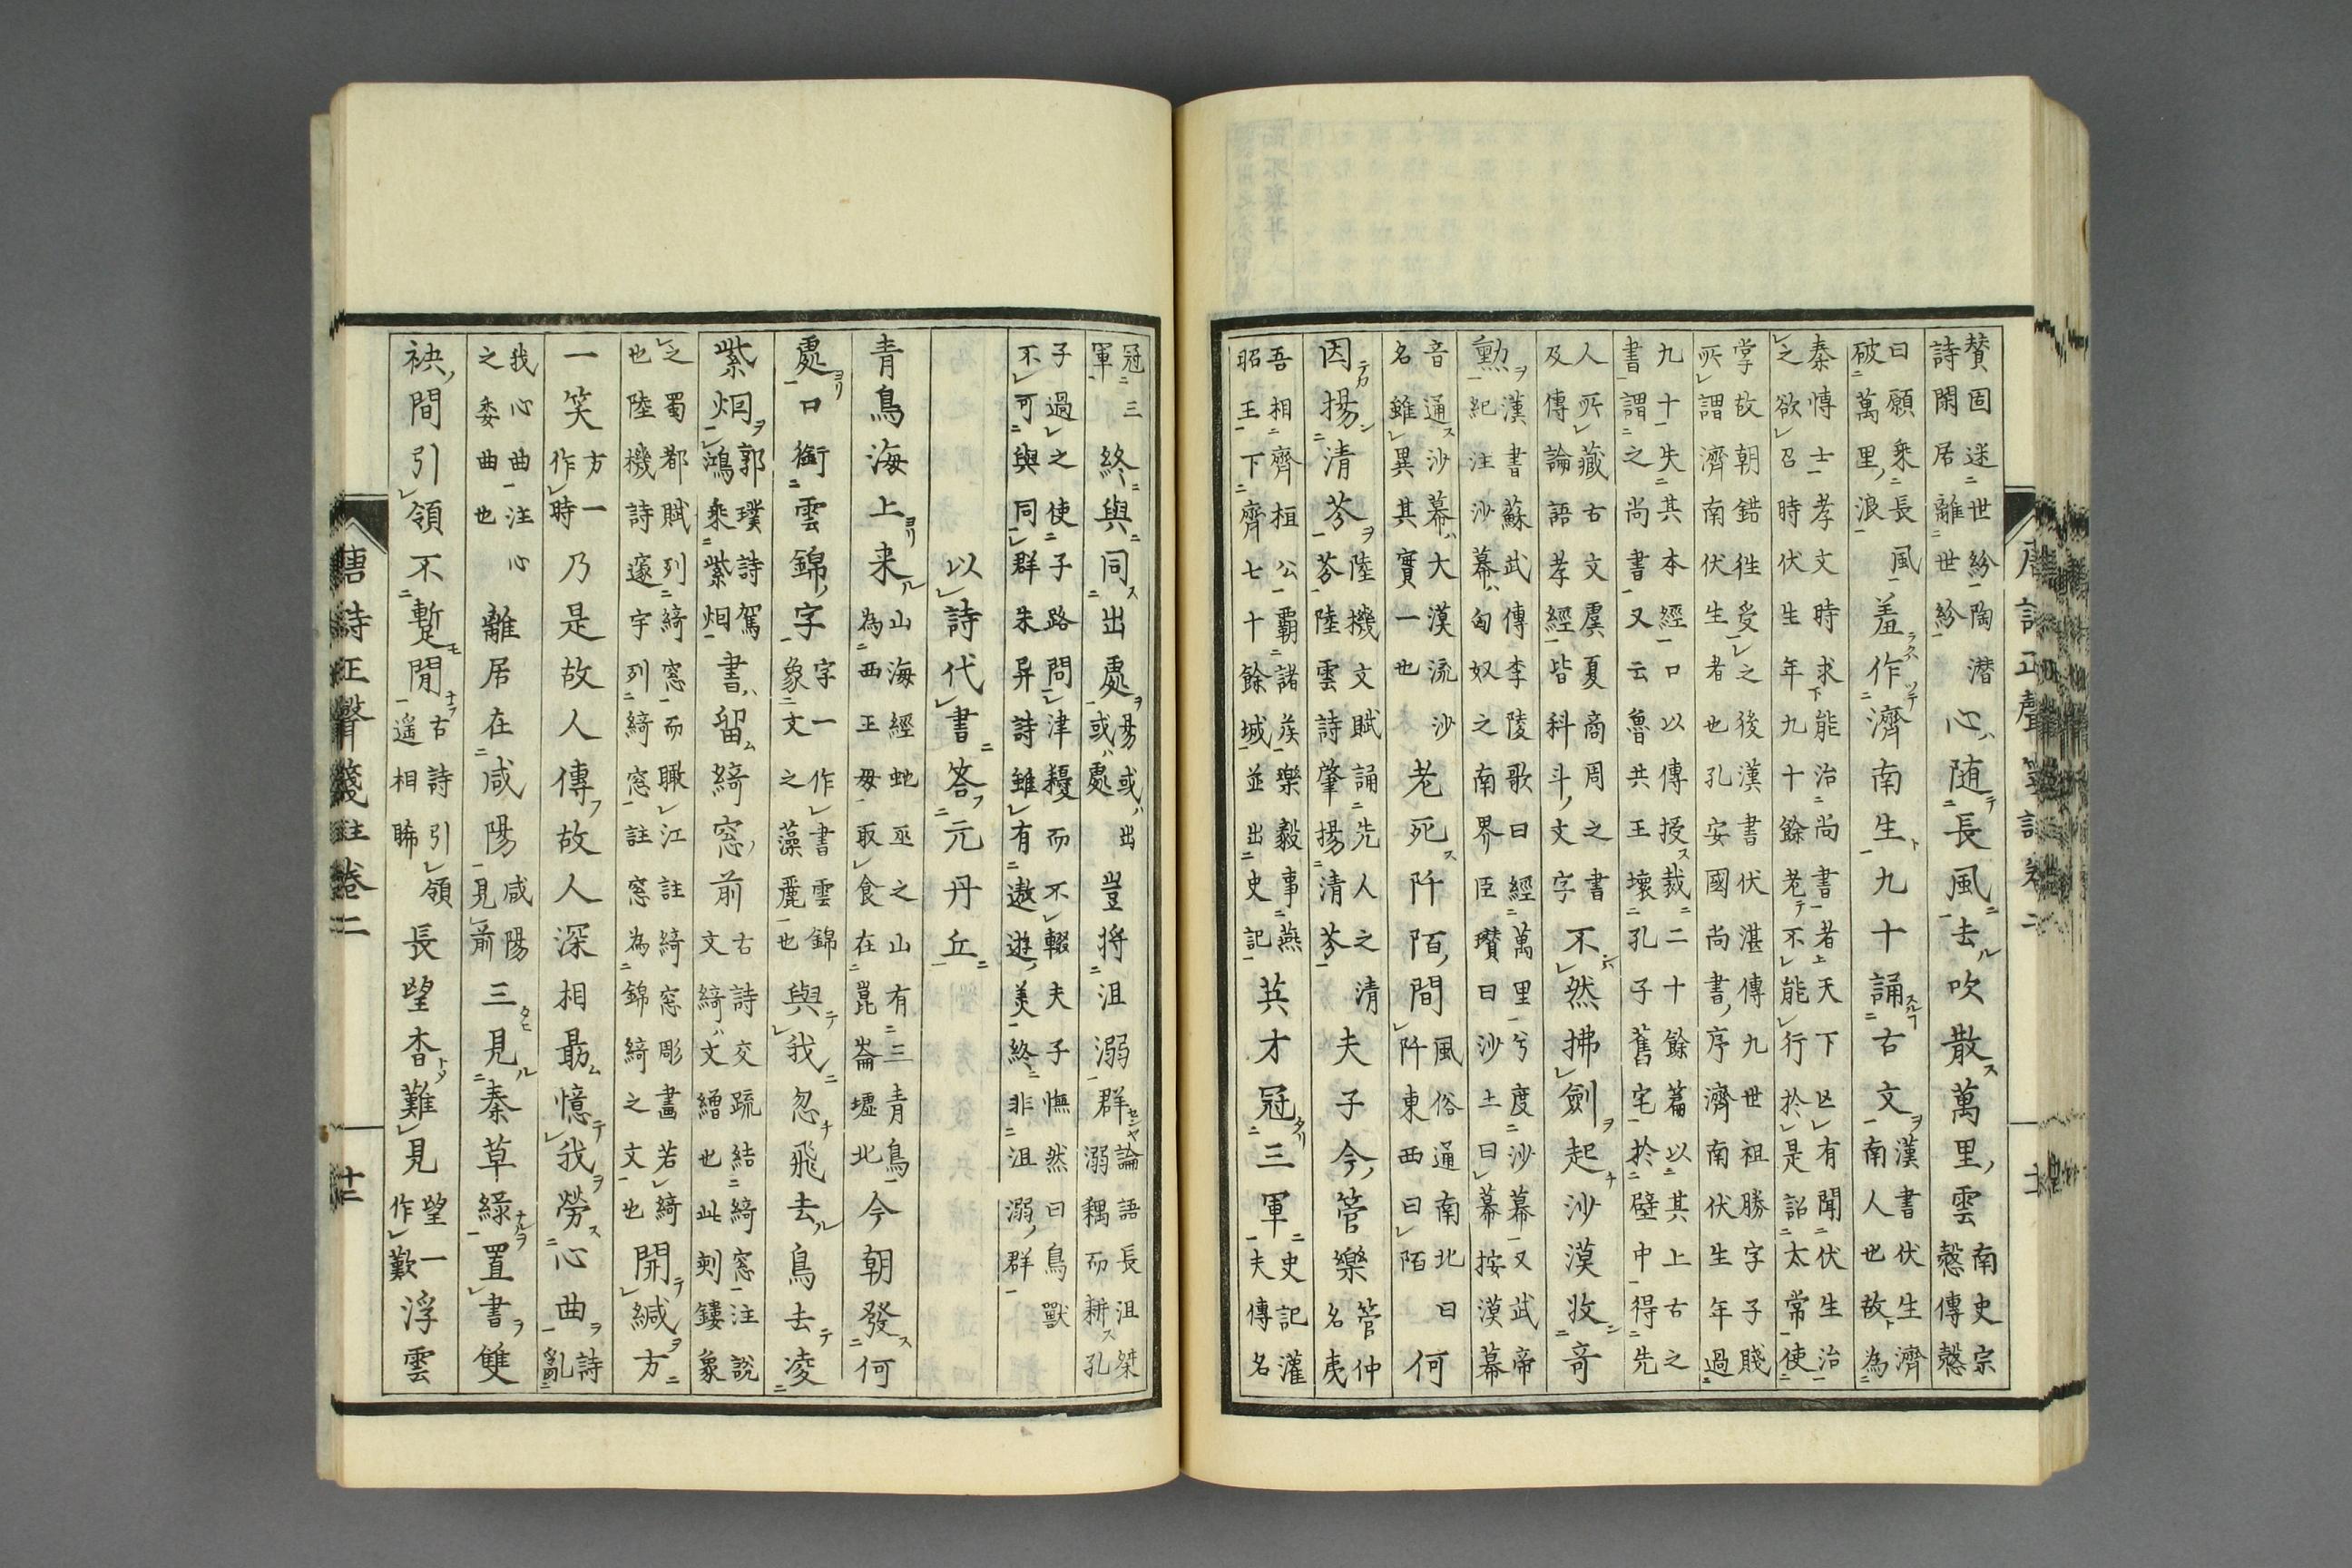 賛固迷世紛陶潜
詩閑居離世紛
心随長風去吹散萬里雲
南史宗
慤傳慤
曰願乗長風
破萬里浪
羞作濟南生九十誦古文
漢書伏生濟
南人也故為
秦愽士孝文時求能治尚書者天下亡有聞伏生治
之欲召時伏生年九十餘老不能行於是詔太常使
掌故朝錯徃受之後漢書伏湛傳九世祖勝字子賤
所謂濟南伏生者也孔安國尚書序濟南伏生年過
九十失其本經口以傳授裁二十餘篇以其上古之
書謂之尚書又云魯共王壊孔子舊宅於壁中得先
人所藏古文虞夏商周之書
及傳論語孝經皆科斗文字
不然拂劍起沙漠收奇
勲
漢書蘇武傳李陵歌曰經萬里兮度沙幕又武帝
紀注沙幕匈奴之南界臣瓚曰沙土曰幕按漠幕
音通沙幕大漠流沙
名雖異其實一也
老死阡陌間
風俗通南北曰
阡東西曰陌
何
因揚清芬
陸機文賦誦先人之清
芬陸雲詩肇揚清芬
夫子今管樂
管仲
名夷
吾相齊桓公覇諸侯樂毅事燕
昭王下齊七十餘城並出史記
英才冠三軍
史記灌
夫傳名
冠三
軍
終與同出處
易或出
或處
豈将沮溺群
論語長沮桀
溺耦而耕孔
子過之使子路問津耰而不輟夫子憮然曰鳥獸
不可與同群朱异詩雖有遨遊美終非沮溺群
以詩代書答元丹丘
青鳥海上来
山海經虵巫之山有三青鳥
為西王母取食在崑崙墟北
今朝發何
處口銜雲錦字
字一作書雲錦
象文之藻麗也
與我忽飛去鳥去凌
紫烟
郭璞詩駕
鴻乗紫烟
書留綺窓前
古詩交疏結綺窓注説
文綺文繒也此刻鏤象
之蜀都賦列綺窓而瞰江註綺窓彫畫若綺
也陸機詩邃宇列綺窓註窓為錦綺之文也
開緘方
一笑
方一
作時
乃是故人傳故人深相最憶我勞心曲
詩
亂
我心曲注心
之委曲也
離居在咸陽
咸陽
見前
三見秦草緑置書雙
袂間引領不暫閒
古詩引領
遥相睎
長望杳難見
望一
作歎
浮雲
唐詩正聲箋註卷二
十二